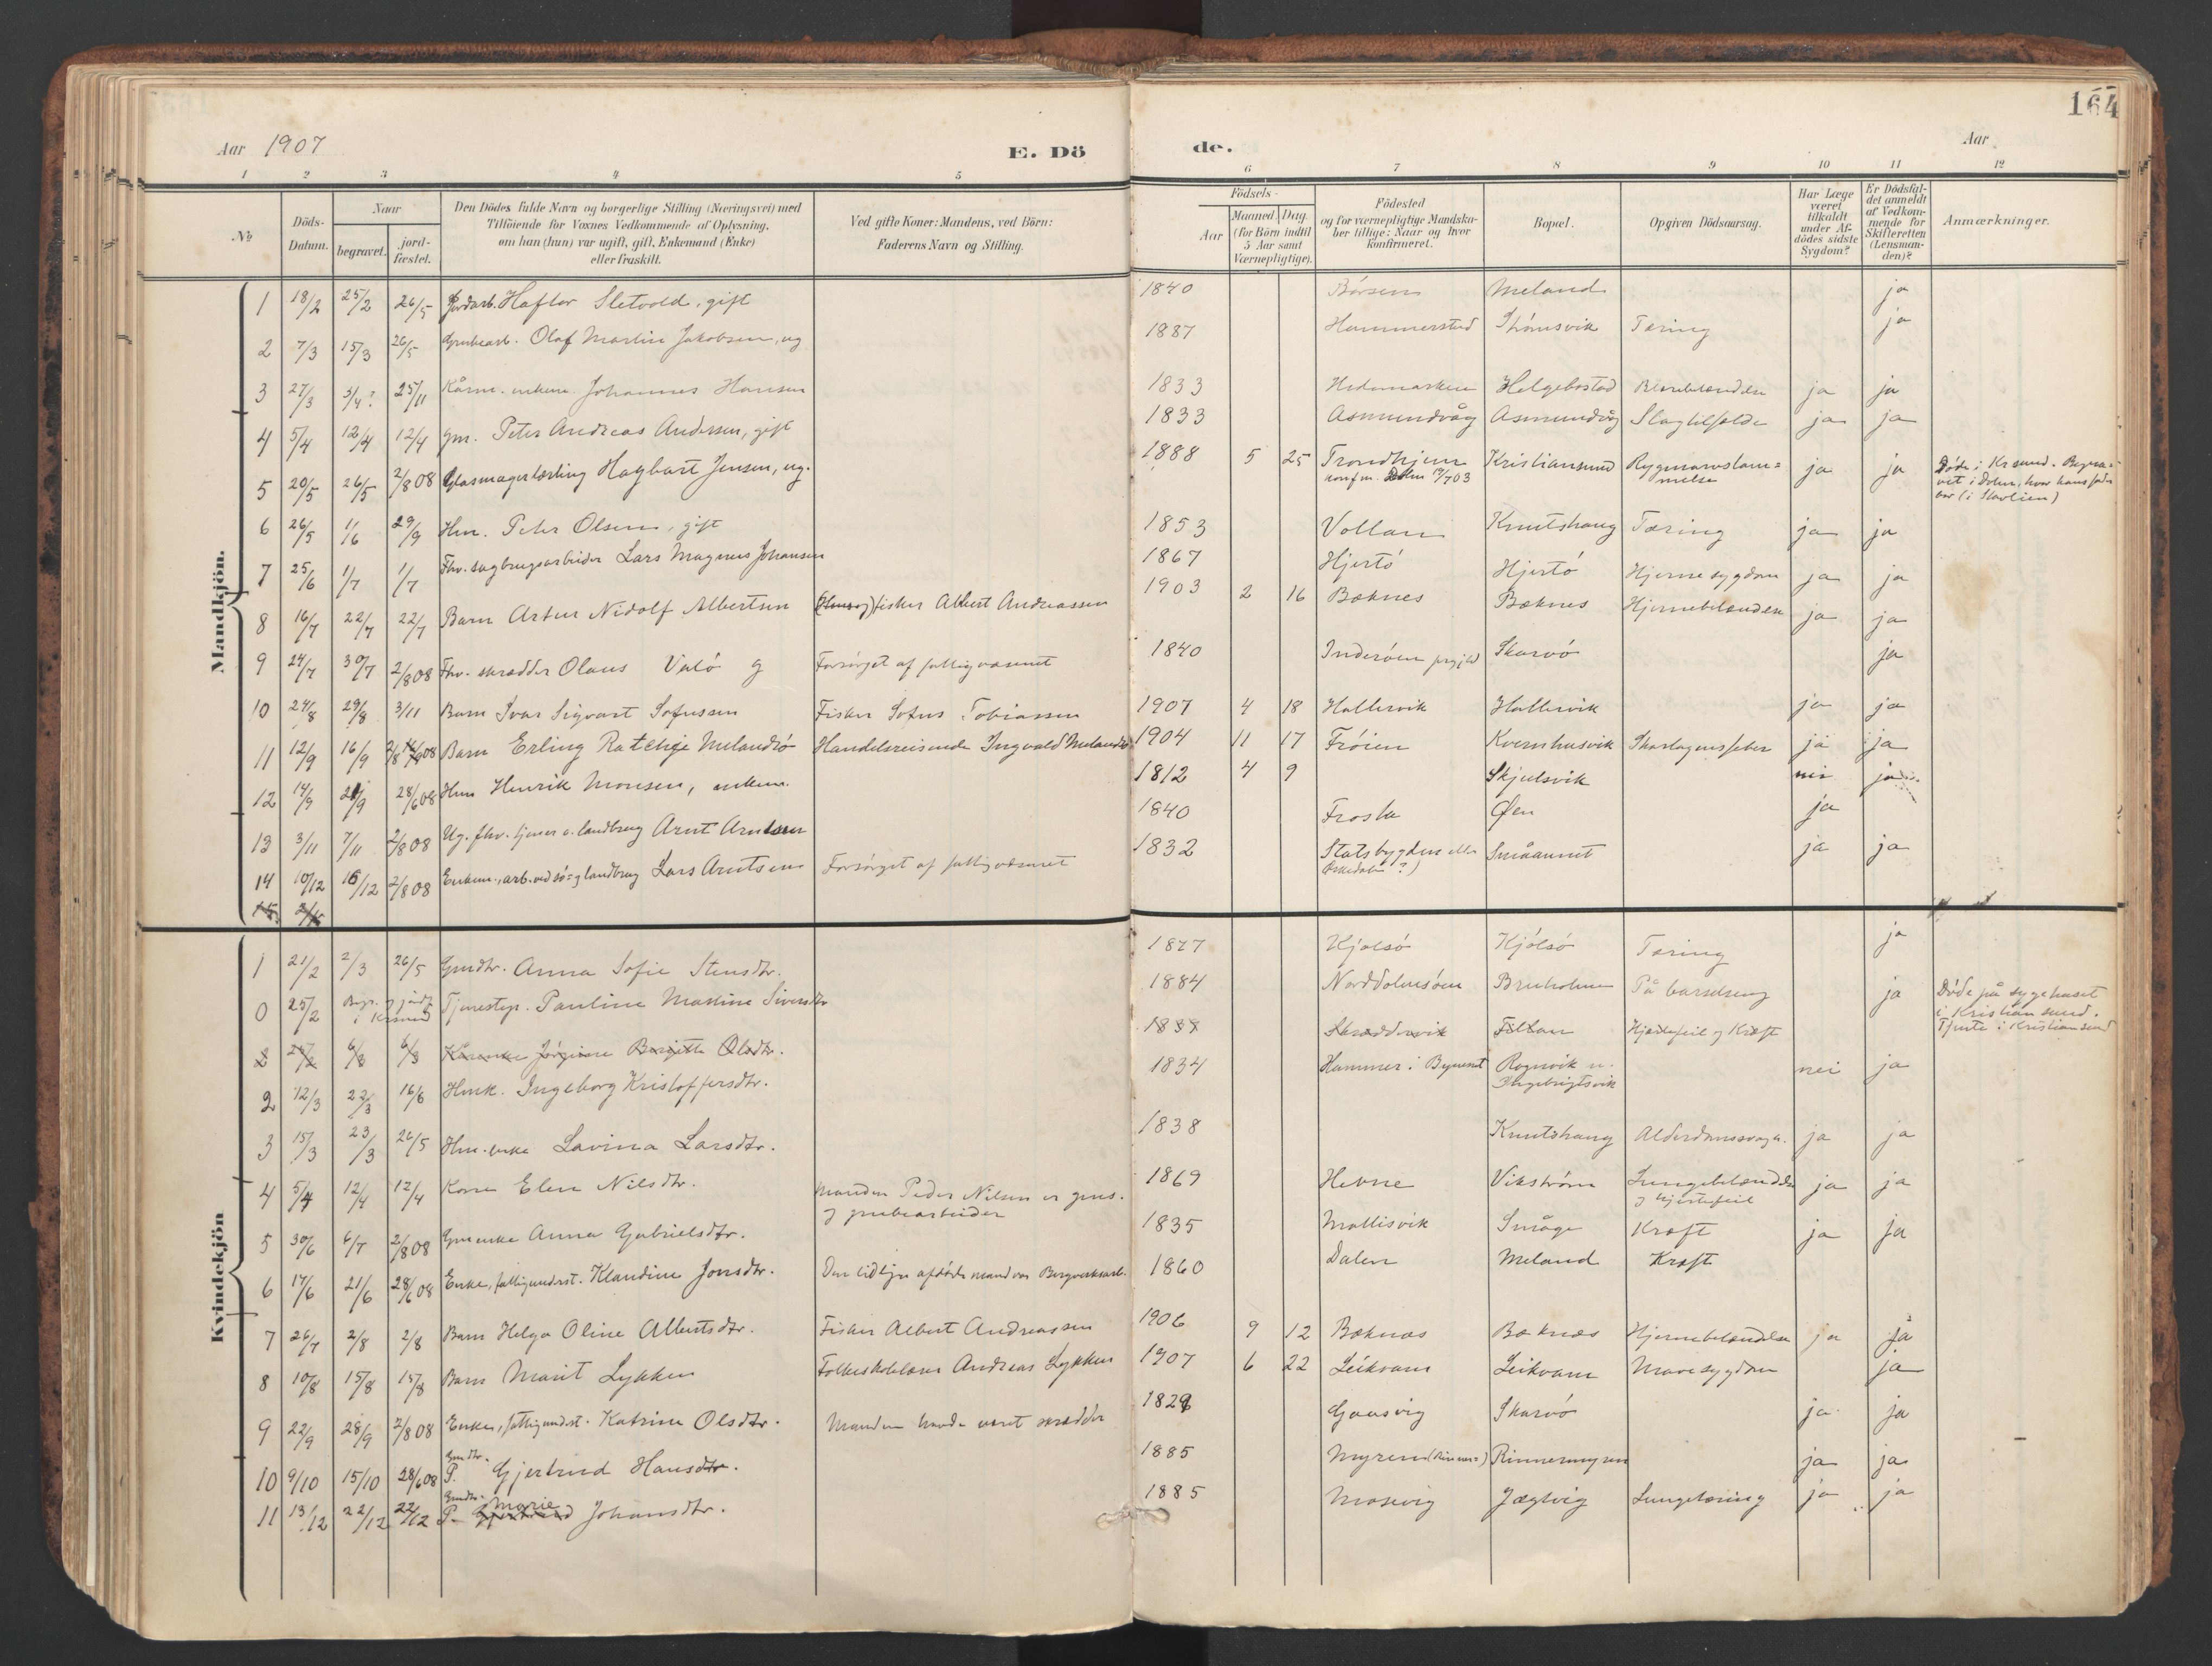 164
Aar 1907
E. Dö
de.
Aar
1 2 3 4 5 6 7 8 9 10 11 12
No
Döds-Datum.
Naar
begravet. jord-fæstet.
Den Dödes fulde Navn og borgerlige Stilling (Næringsvei) med
Tilföiende for Voxnes Vedkommende af Oplysning,
om han (hun) var ugift, gift, Enkemand (Enke)
eller fraskilt.
Ved gifte Koner: Mandens, ved Börn:
Faderens Navn og Stilling.
Födsels-
Aar
Maaned. Dag.
(for Börn indtil
5 Aar samt
Værnepligtige).
Födested
og for værnepligtige Mandska-
ber tillige: Naar og hvor
konfirmeret.
Bopæl.
Opgiven Dödsaarsag.
Har Læge
været
tilkaldt
under Af-
dödes sidste
Sygdom?
Er Dödsfal-
det anmeldt
af Vedkom-
mende for
Skifteretten
(Lensman-
den)?
Anmærkninger.
Mandkjön.
1 18/2 25/2 26/5 Jordarb. Haftor Sletvold, gift 1840 Börsen Meland ja
2 7/3 15/3 26/5 Grubearb. Olaf Martin Jakobsen, ug 1887 Hammerstad Strömsvik Tæring ja
3 27/3 3/4? 25/11 Kårm. enkem. Johannes Hansen 1833 Hedemarken Helgebostad ja ja
4 5/4 12/4 12/4 Gm. Peter Andreas Andersen, gift 1833 Asmundvåg Asmundvåg Slagtilfælde ja ja
5 20/5 26/5 2/8 08 Glasmagerlærling Hagbart Jensen, ug. 1888 5 25 Trondhjem Kristiansund Rygmarvslam= ja ja Döde i Krsund. Begra=
konfm. Dolm 19/7 03 melse vet i Dolm, hvor hans fader
var (i Skavlien)
6 26/5 1/6 29/9 Hm. Peter Olsen, gift 1853 Vollan Knutshaug Tæring ja ja
7 25/6 1/7 1/7 Fhv. sagbrugsarbeider Lars Magnus Johansen 1867 Hjertö Hjertö Hjernesygdom ja ja
8 16/7 22/7 22/7 Barn Artur Nidolf Albertsen fisker Albert Andreassen 1903 2 16 Bæknes Bæknes Hjernebetændelse ja ja
9 24/7 30/7 2/8 08 Fhv. skrædder Olaus Valö g Forsörget af fattigvæsenet 1840 Inderöen prgjld Skarvö ja
10 24/8 29/8 3/11 Barn Ivar Sigvart Sofussen Fisker Sofus Tobiassen 1907 4 18 Hallervik Hallervik ja ja
11 12/9 16/9 2/8 08 Barn Erling Ratchje Melandsö Handelsreisende Ingvald Melandsö 1904 11 17 Fröien Kvernhusvik Skarlagensfeber ja ja
12 14/9 21/9 28/6 08 Hm Henrik Monsen, enkem. 1812 4 9 Skjulsvik nei ja
13 3/11 7/11 2/8 08 Ug. fhv. tjener v. landbrug Arnt Arntsen 1840 Frosta Øen ja
14 10/12 16/12 2/8 08 Enkem., arb. ved sö= g landbrug Lars Arntsen Forsörget af fattigvæsenet 1832 Statsbygden eller Småaunet ja ja
Kvindekjön
1 21/2 2/3 26/5 Gmdtr. Anna Sofie Stensdtr. 1877 Kjölsö Kjölsö Tæring ja
0 25/2 Begr. g jordf. Tjenestep. Pauline Martine Siversdtr 1884 Norddolmsöen Bruholmen På barselseng ja Döde på sygehuset
i Krsund i Kristiansund.
Tjente i Kristiansund
2 6/3 6/3 Kårenke Jörgine Bergitte Olsdtr. Skræddervik Hjertefeil g Kræft
2 12/3 22/3 16/6 Hmk. Ingeborg Kristoffersdtr. 1834 Hammer i Bynesset Rognvik u. nei ja
Engebrigtsvik
3 15/3 23/3 26/5 Hm. enke Lavina Larsdtr. 1838 Knutshaug Alderdomssvagh. ja ja
4 5/4 12/4 12/4 Kone Elen Nilsdtr. Manden Peder Nilsen er gms. 1869 Hevne Vikström Lungebetændelse ja ja
g grubearbeider g hjertefeil
5 30/6 6/7 2/8 08 Gmenke Anna Gabrielsdtr. 1835 Mallisvik Småge Kræft ja ja
6 17/6 21/6 28/6 08 Enke, fattigunderst. Klaudine Jonsdtr. Den tidligere afdöde mand var Bergverksarb. 1860 Dalen Meland Kræft
7 26/7 2/8 2/8 Barn Helga Oline Albertsdtr. Fisker Albert Andreassen 1906 9 12 Bæknæs Bæknæs Hjernebetændelse ja ja
8 10/8 15/8 15/8 Barn Marit Lykken Folkeskolelærer Andreas Lykken 1907 6 22 Leikvam Leikvam Mavesygdom ja
9 22/9 28/9 2/8 08 Enke, fattigundst. Katrine Olsdtr. Manden havde været skrædder 1828 Gaasvig Skarvö ja ja
Gmdtr.
10 9/10 15/10 28/6 08 P. Gjertrud Hansdtr. 1885 Myren Rinnemyren ja ja
Gmdtr. Marie
11 13/12 22/12 22/12 P. Gjertrud Johansdtr. 1885 Mosevig Jægtvig Lungetæring ja ja